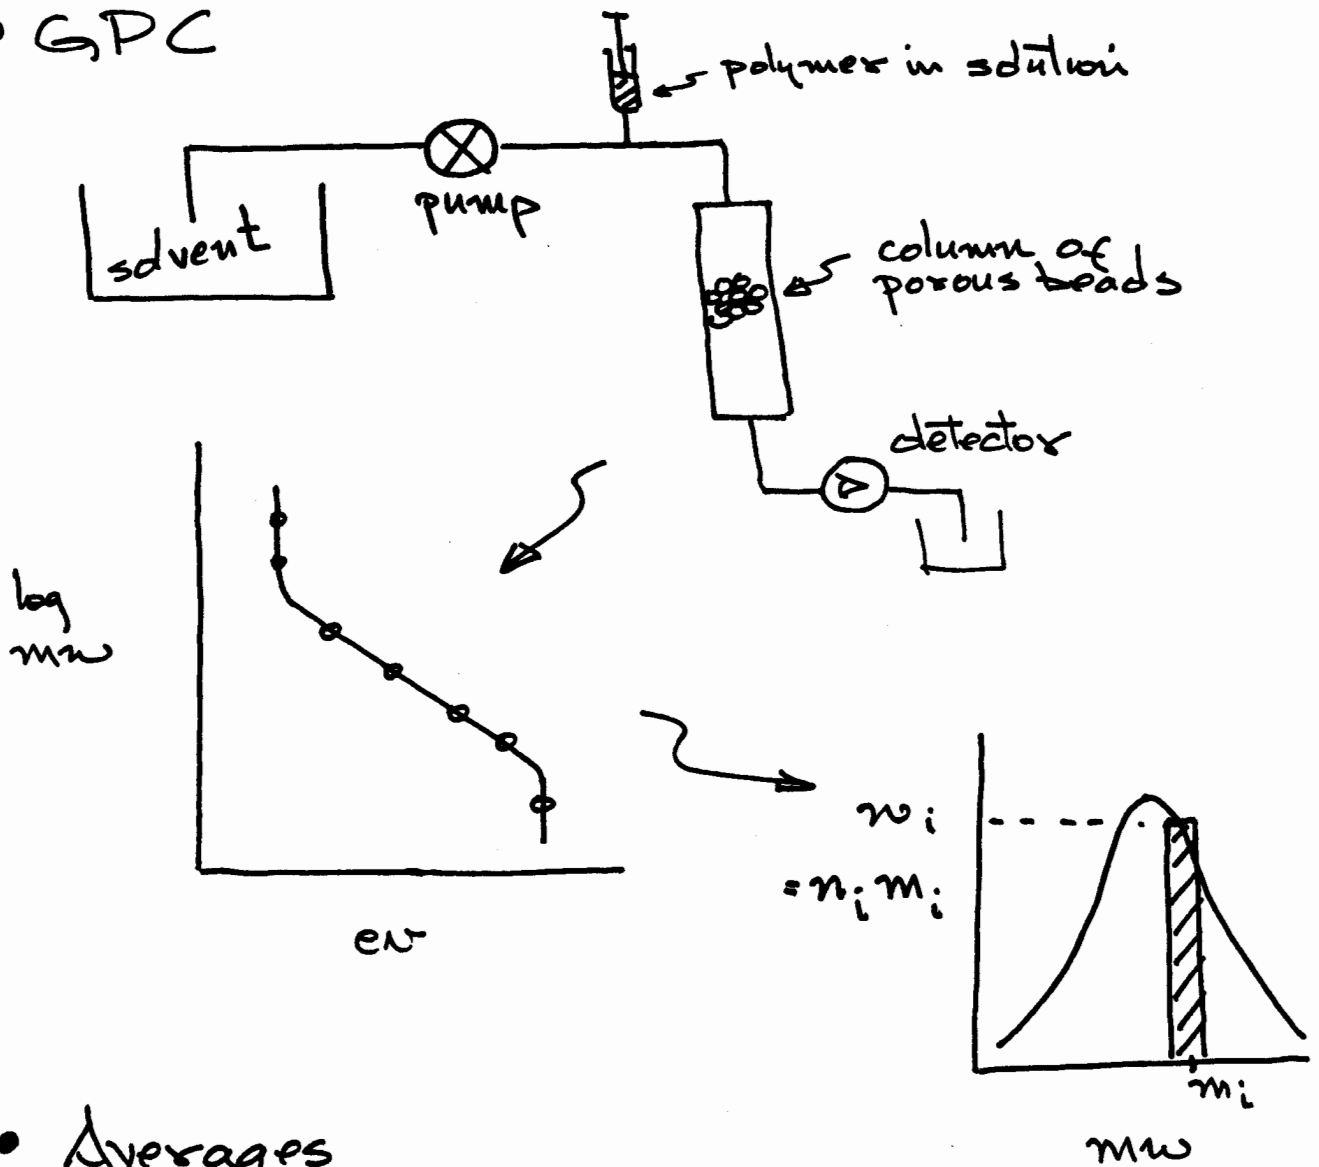 • GPC
polymer in solution
pump
solvent
column of
porous beads
detector
log
mw
ev
wi
= ni mi
mi
mw
• Averages